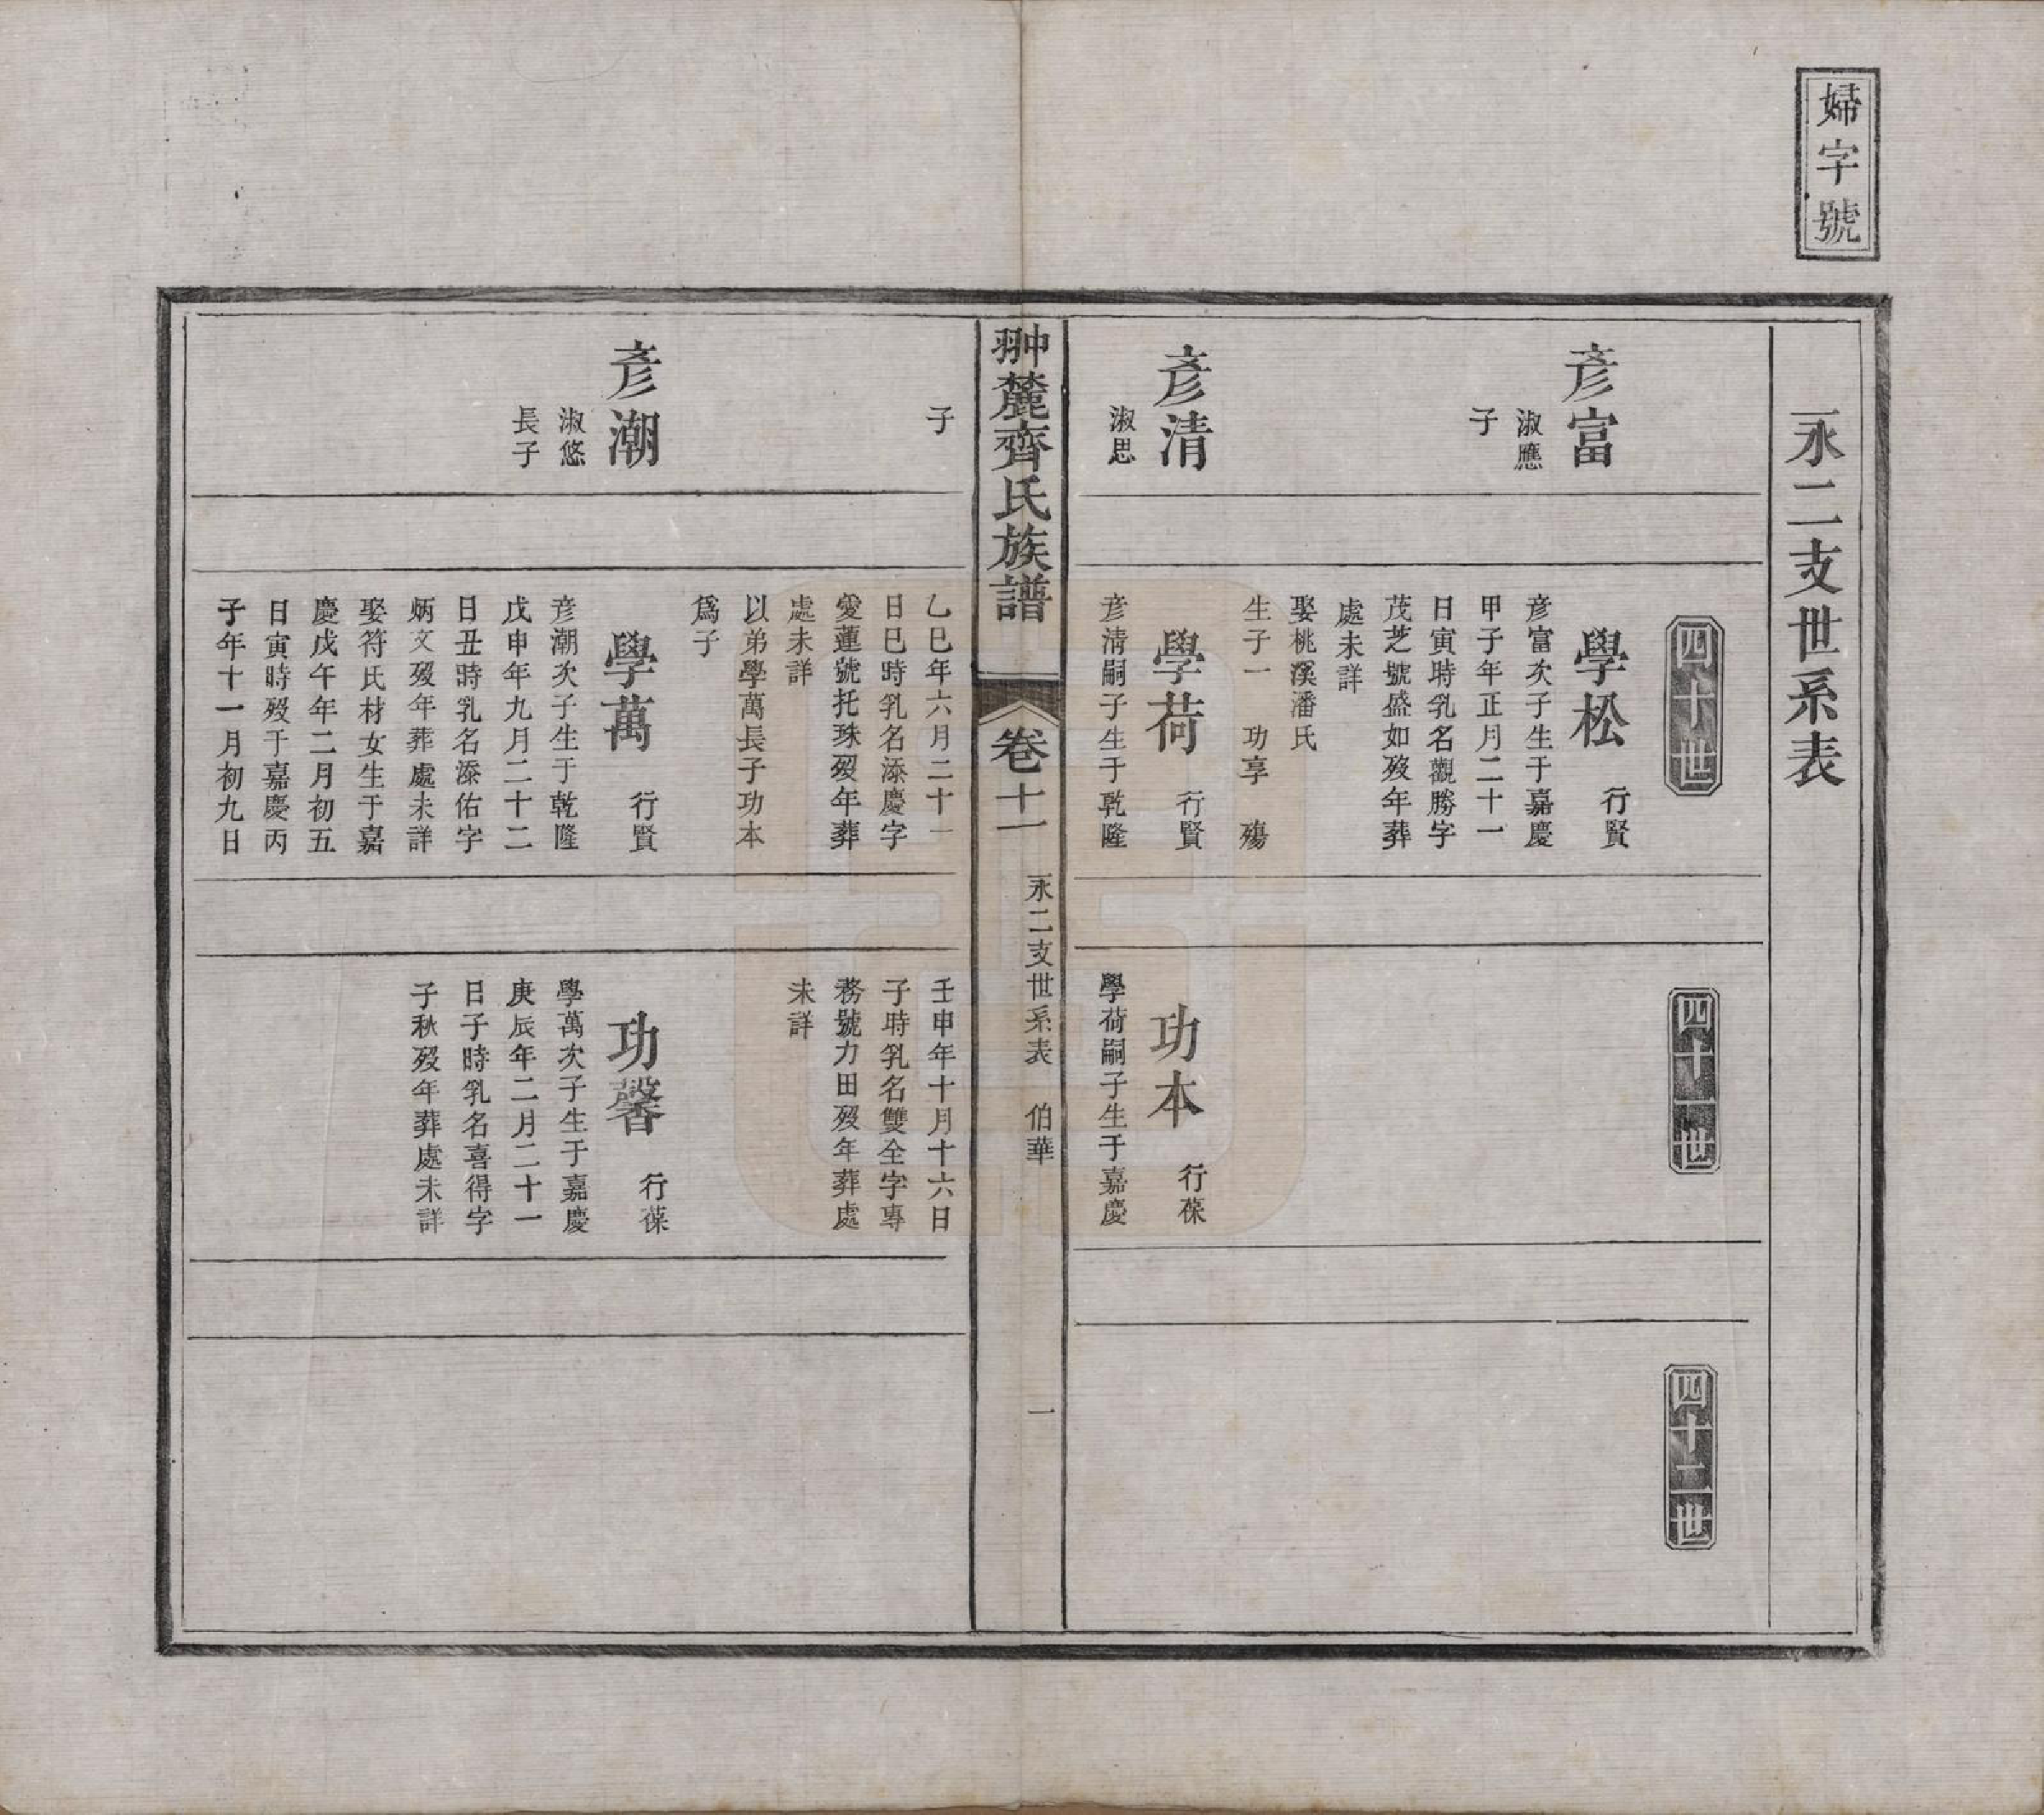 婦字號
永二支世系表
四十世
四十一世
四十二世
彥富
淑應
子
學松 行賢
彥富次子生于嘉慶
甲子年正月二十一
日寅時乳名觀勝字
茂芝號盛如歿年葬
處未詳
娶桃溪潘氏
生子一 功享 殤
彥清
淑思
學荷 行賢
彥清嗣子生于乾隆
功本 行葆
學荷嗣子生于嘉慶
翀麓齊氏族譜 卷十一 永二支世系表 伯華 一
子
乙巳年六月二十一
日巳時乳名添慶字
愛蓮號托珠歿年葬
處未詳
以弟學萬長子功本
爲子
壬申年十月十六日
子時乳名雙全字專
務號力田歿年葬處
未詳
彥潮
淑悠
長子
學萬 行賢
彥潮次子生于乾隆
戊申年九月二十二
日丑時乳名添佑字
炳文歿年葬處未詳
娶符氏材女生于嘉
慶戊午年二月初五
日寅時歿于嘉慶丙
子年十一月初九日
功馨 行葆
學萬次子生于嘉慶
庚辰年二月二十一
日子時乳名喜得字
子秋歿年葬處未詳